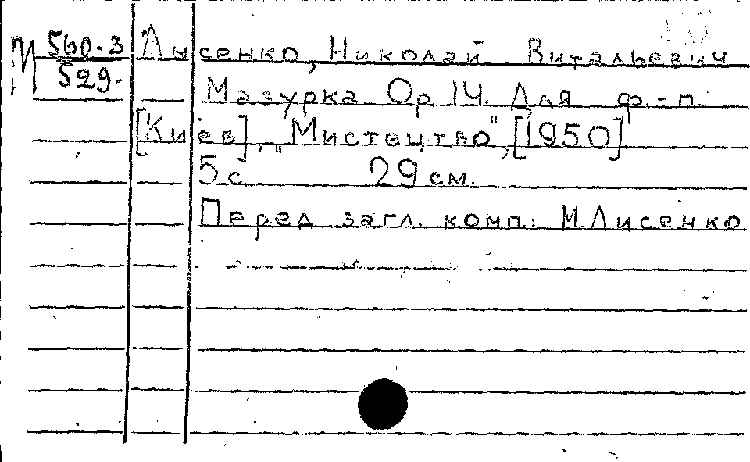 М 560-3
529.
Лысенко, Николай Витальевич
Мазурка Ор 14. Для ф.-п.
[Киев], "Мистецтво", [1950]
5 с 29 см.
Перед загл. комп: М Лисенко